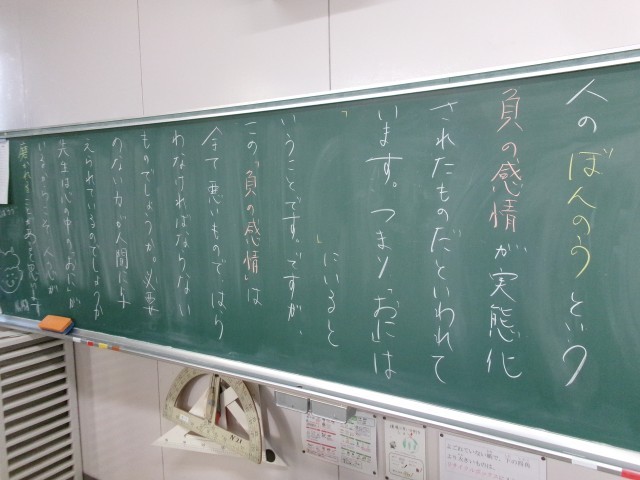 人のぼんのうという
負の感情が実態化
されたものだといわれて
います。つまり「おに」は
「 」にいると
いうことです。ですが、
この「負の感情」は
全て悪いものではら
わなければならない
ものでしょうか。必要
のない力が人間に与
えられているのでしょうか
先生は心の中の「おに」が
いるからこそ、人は心が
と思います